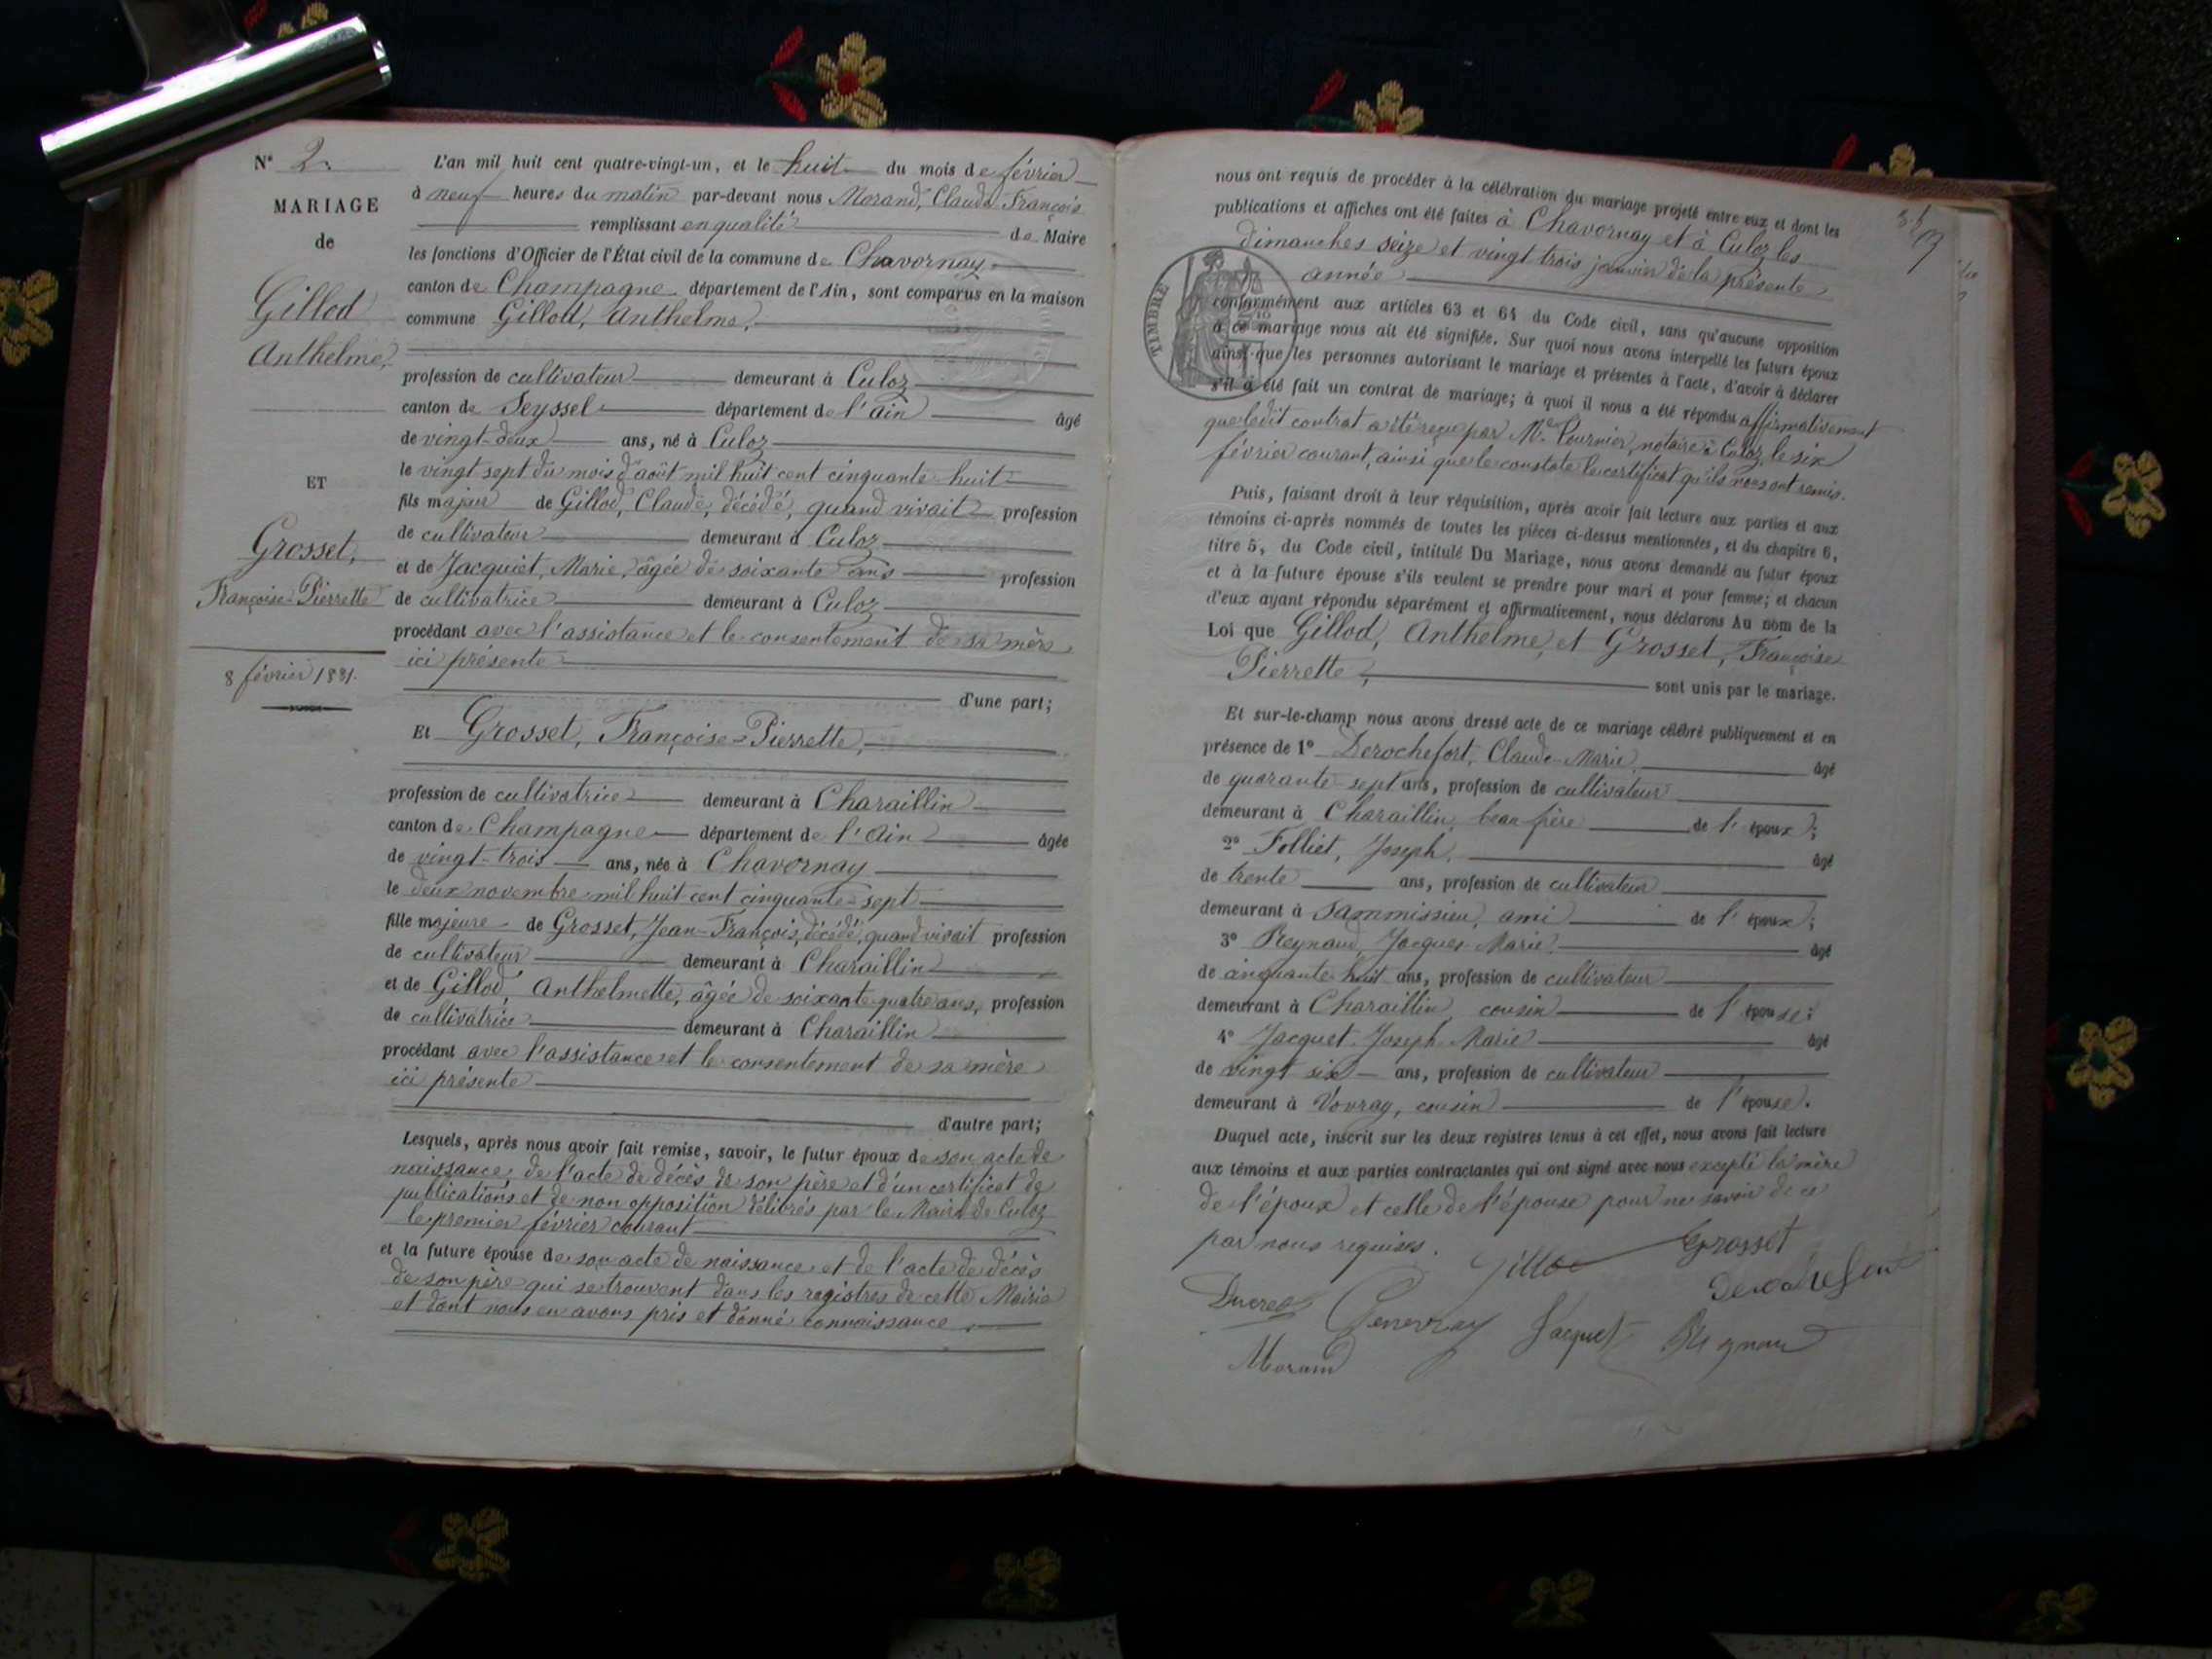 N° 2.
MARIAGE
de
Gillod
Anthelme,
ET
Grosset,
Françoise-Pierrette
8 février 1881.
L'an mil huit cent quatre-vingt-un, et le huit du mois de février
à neuf heures du matin par-devant nous Morand, Claude François
remplissant en qualité de Maire
les fonctions d'Officier de l'État civil de la commune de Chavornay
canton de Champagne département de l'Ain, sont comparus en la maison
commune Gillod, Anthelme,
profession de cultivateur demeurant à Culoz
canton de Seyssel département de l'Ain âgé
de vingt-deux ans, né à Culoz
le vingt sept du mois d'août mil huit cent cinquante huit
fils majeur de Gillod, Claude, décédé, quand vivait profession
de cultivateur demeurant à Culoz
et de Jacquiet, Marie, âgée de soixante ans profession
de cultivatrice demeurant à Culoz
procédant avec l'assistance et le consentement de sa mère
ici présente
d'une part;
Et Grosset, Françoise-Pierrette,
profession de cultivatrice demeurant à Charaillin
canton de Champagne département de l'Ain âgée
de vingt-trois ans, née à Chavornay
le deux novembre mil huit cent cinquante-sept
fille majeure de Grosset, Jean-François, décédé, quand vivait profession
de cultivateur demeurant à Charaillin
et de Gillod, Anthelmette, âgée de soixante quatre ans, profession
de cultivatrice demeurant à Charaillin
procédant avec l'assistance et le consentement de sa mère
ici présente
d'autre part;
Lesquels, après nous avoir fait remise, savoir, le futur époux de son acte de
naissance, de l'acte de décès de son père et d'un certificat de
publications et de non opposition délibrés par le Maire de Culoz
le premier février courant
et la future épouse de son acte de naissance et de l'acte de décès
de son père qui se trouvent dans les registres de cette Mairie
et dont nous en avons pris et donné connaissance.
nous ont requis de procéder à la célébration du mariage projeté entre eux et dont les
publications et affiches ont été faites à Chavornay et à Culoz les
dimanches seize et vingt trois janvier de la présente
année
TIMBRE
conformément aux articles 63 et 64 du Code civil, sans qu'aucune opposition
à ce mariage nous ait été signifiée. Sur quoi nous avons interpellé les futurs époux
ainsi que les personnes autorisant le mariage et présentes à l'acte, d'avoir à déclarer
s'il a été fait un contrat de mariage; à quoi il nous a été répondu affirmativement
que ledit contrat a été reçu par Me Fournier, notaire à Culoz, le six
février courant, ainsi que le constate le certificat qu'ils nous ont remis.
Puis, faisant droit à leur réquisition, après avoir fait lecture aux parties et aux
témoins ci-après nommés de toutes les pièces ci-dessus mentionnées, et du chapitre 6,
titre 5, du Code civil, intitulé Du Mariage, nous avons demandé au futur époux
et à la future épouse s'ils veulent se prendre pour mari et pour femme; et chacun
d'eux ayant répondu séparément et affirmativement, nous déclarons Au nom de la
Loi que Gillod, Anthelme, et Grosset, Françoise
Pierrette, sont unis par le mariage.
Et sur-le-champ nous avons dressé acte de ce mariage célébré publiquement et en
présence de 1° Derochefort, Claude-Marie âgé
de quarante sept ans, profession de cultivateur
demeurant à Charaillin, beau frère de l'époux;
2° Folliet, Joseph, âgé
de trente ans, profession de cultivateur
demeurant à Sammissieu, ami de l'époux;
3° Reynaud, Jacques-Marie âgé
de cinquante huit ans, profession de cultivateur
demeurant à Charaillin, cousin de l'épouse;
4° Jacquet Joseph Marie âgé
de vingt six ans, profession de cultivateur
demeurant à Vovray, cousin de l'épouse.
Duquel acte, inscrit sur les deux registres tenus à cet effet, nous avons fait lecture
aux témoins et aux parties contractantes qui ont signé avec nous excepté la mère
de l'époux et celle de l'épouse pour ne savoir de ce
par nous requises.
Gillod Grosset
Derochefort
Genevray Jacquet
Morand